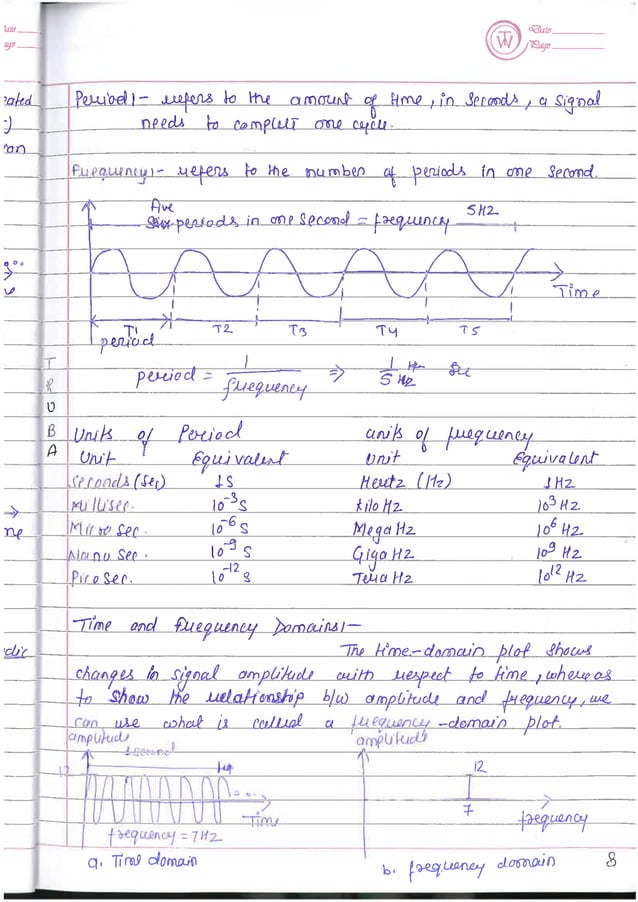 Date
Page
TW
Date
Page
Period:- refers to the amount of time, in seconds, a signal
needs to complete one cycle.
Frequency:- refers to the number of periods in one second.
5HZ
periods in one second = frequency
Time
T1 T2 T3 T4 T5
period
period = 1/frequency ⇒ 1/5 Hz
TRUBA
Units of Period units of frequency
Unit Equivalent Unit Equivalent
Seconds (Sec) 1S Hertz (Hz) 1HZ
Millisec. 10⁻³S Kilo HZ 10³ HZ
Micro Sec. 10⁻⁶S Mega HZ 10⁶ HZ
Nano Sec. 10⁻⁹S Giga HZ 10⁹ HZ
Pico Sec. 10⁻¹² S Tera HZ 10¹² HZ
Time and Frequency Domains:-
The time-domain plot shows
changes in signal amplitude with respect to time, whereas
to show the relationship b/w amplitude and frequency, we
can use what is called a frequency-domain plot.
amplitude amplitude
1 second
12 12
Time 7 frequency
frequency = 7HZ
a. Time domain b. frequency domain 8